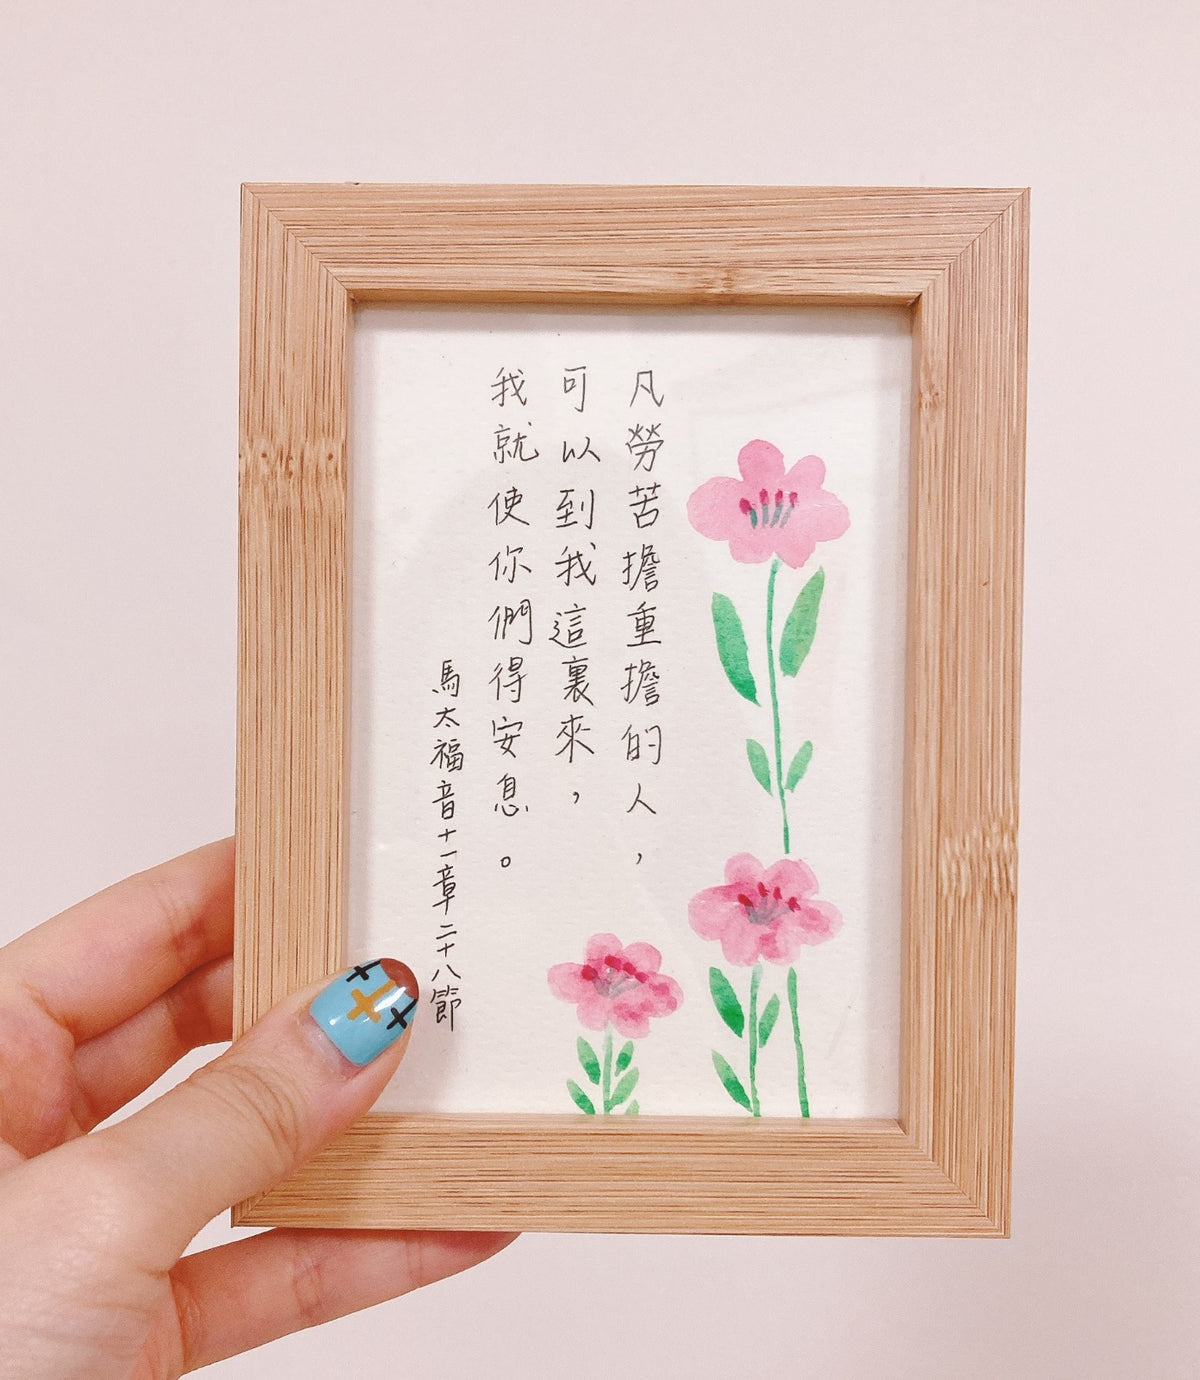 凡勞苦擔重擔的人，
可以到我這裏來，
我就使你們得安息。
馬太福音十一章二十八節